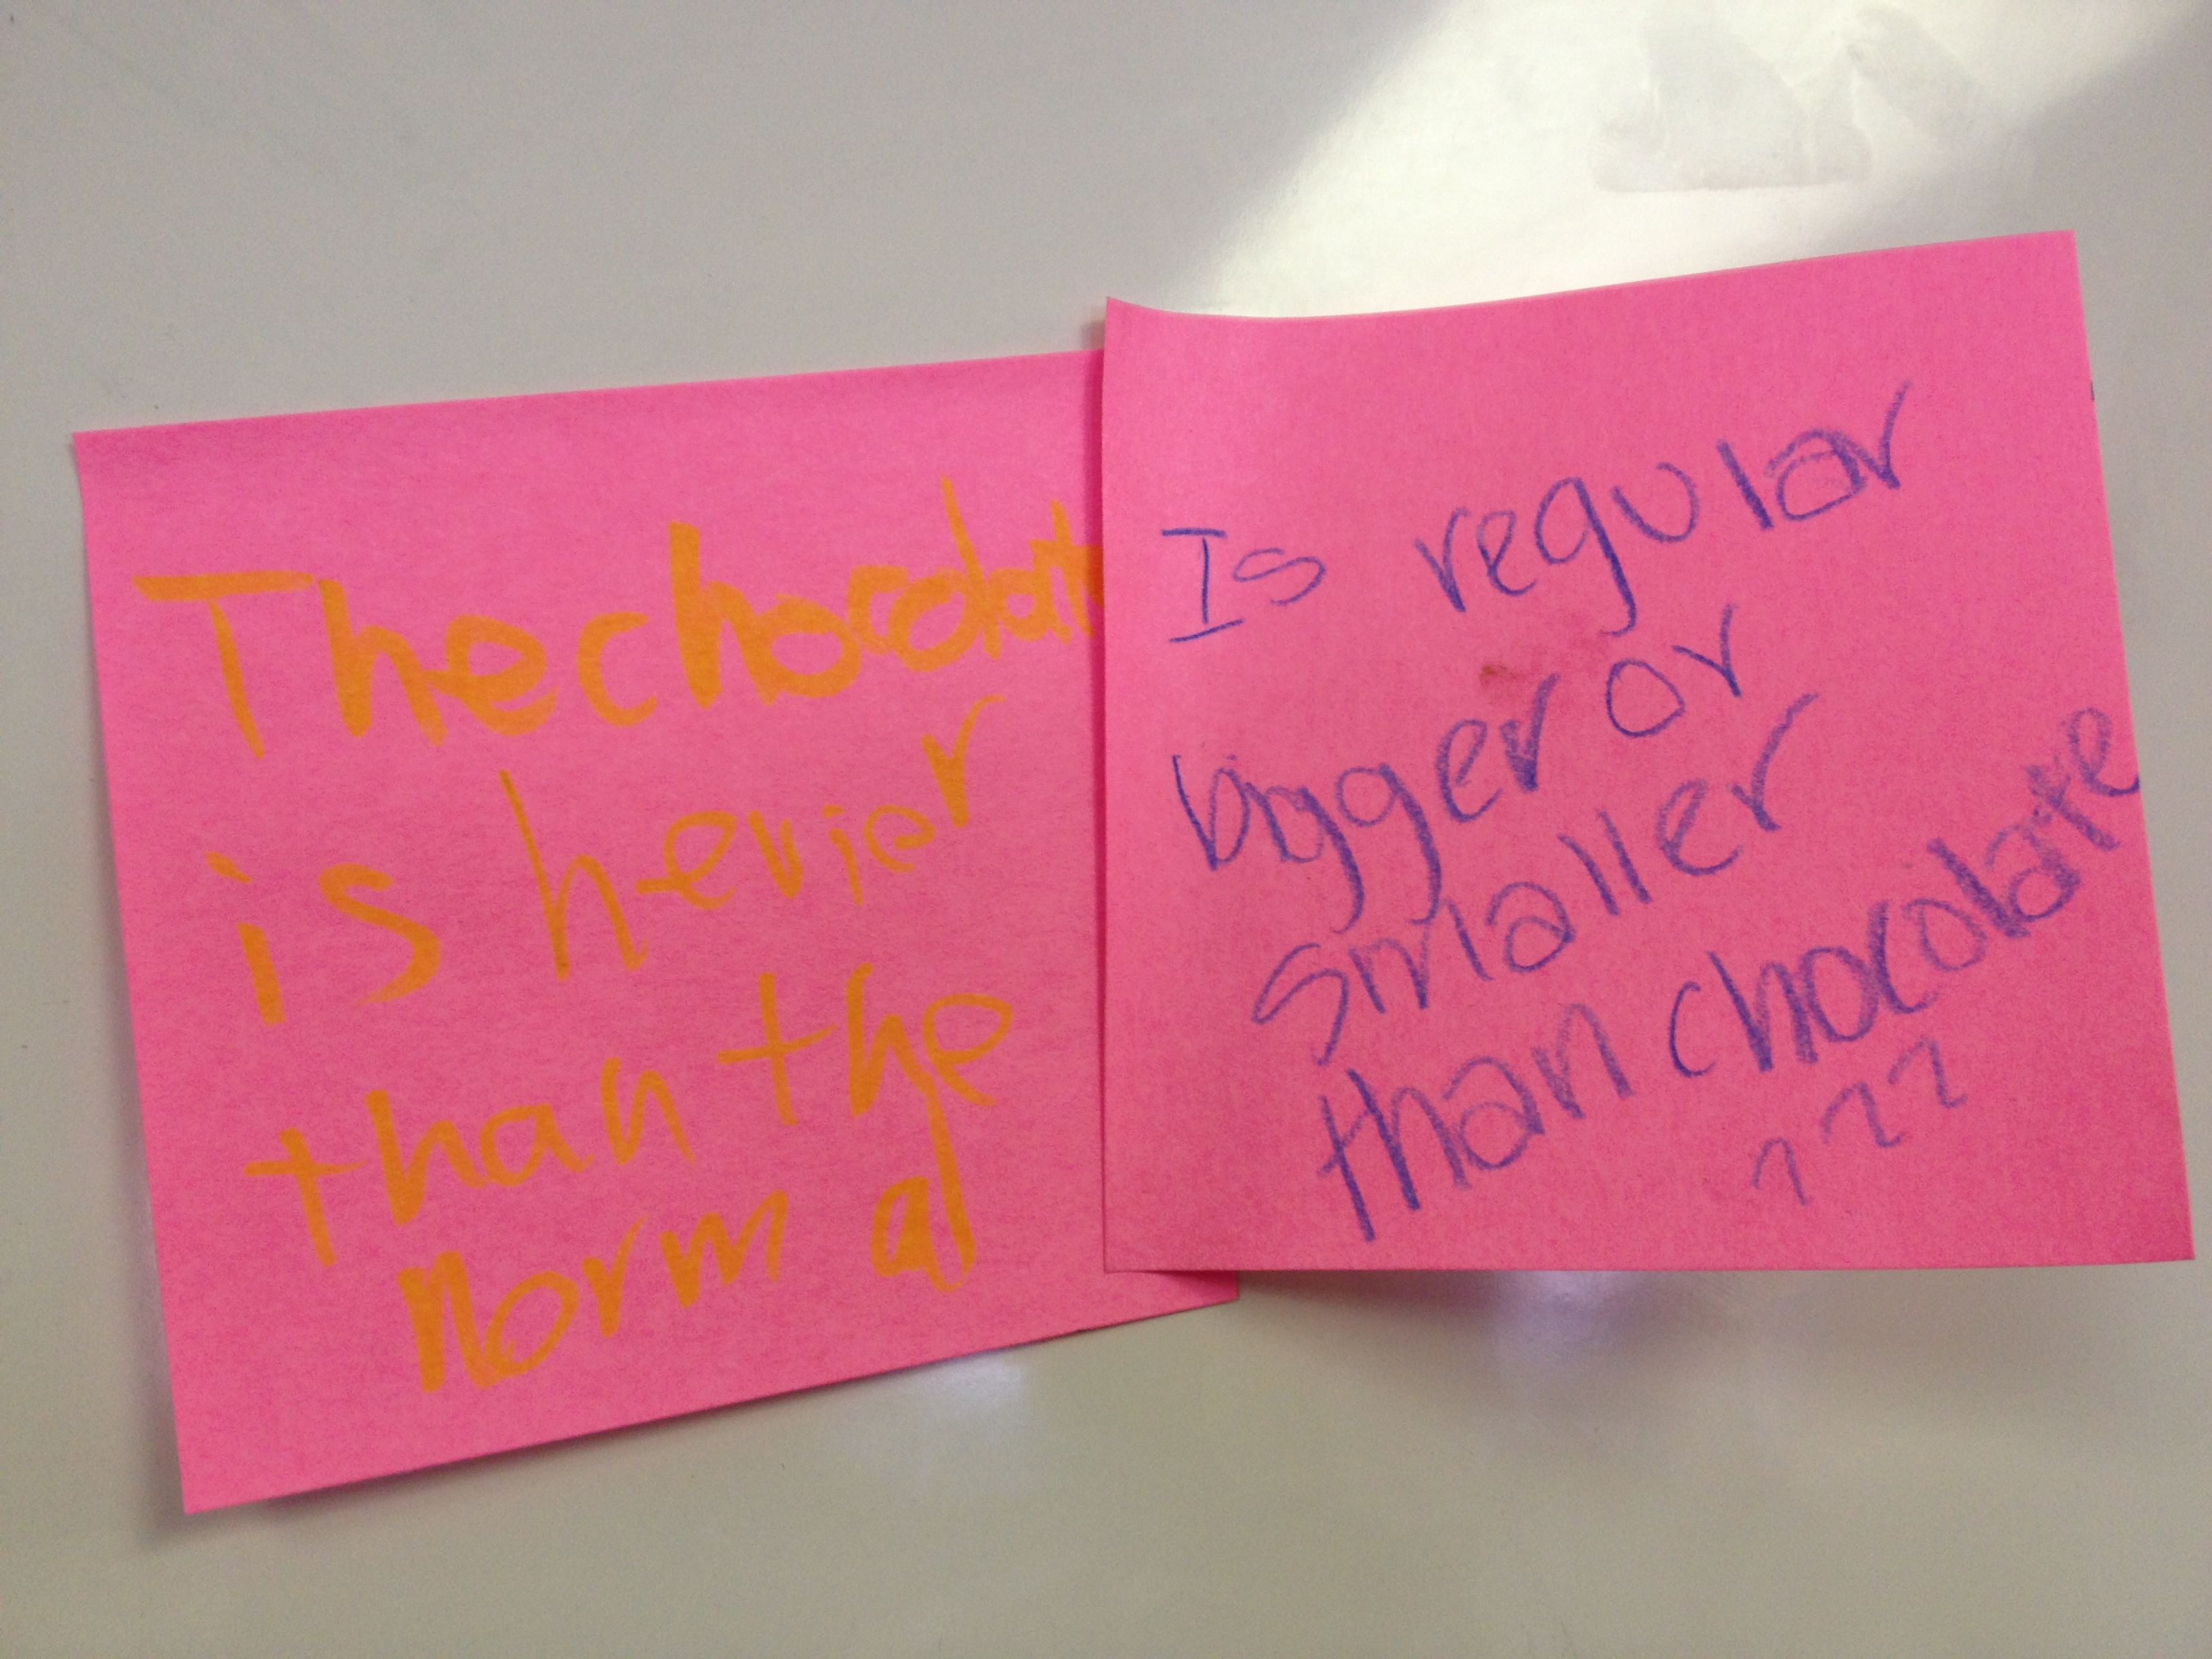 The chocolate
is hevier
than the
normal
Is regular
bigger or
smaller
than chocolate
???